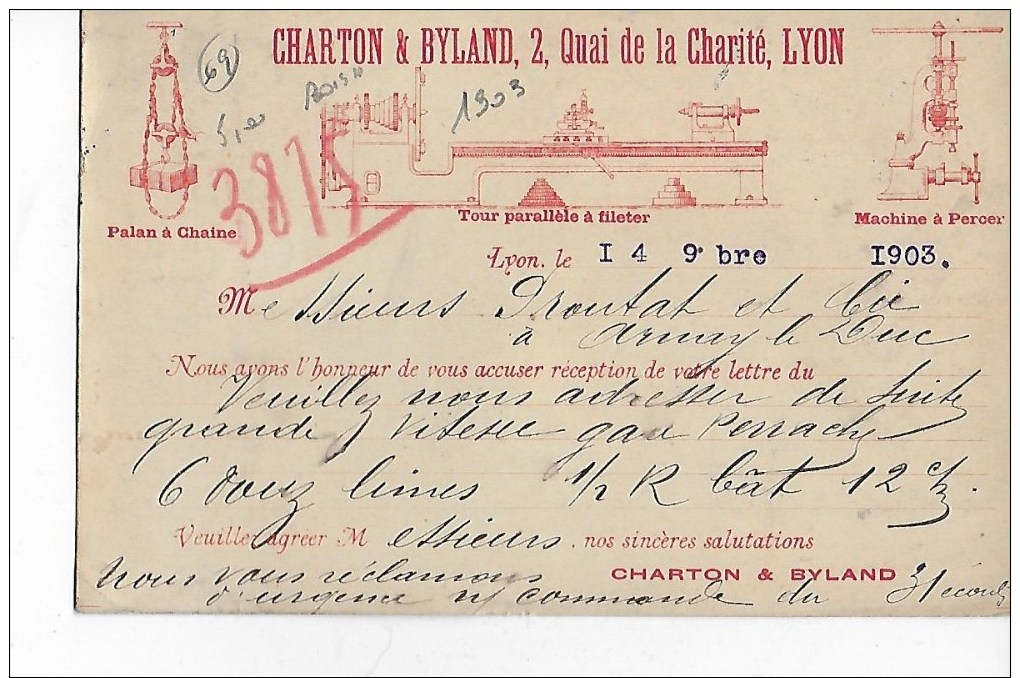 CHARTON & BYLAND, 2, Quai de la Charité, LYON
69
1903
5,00
3875
Palan à Chaine
Tour parallèle à fileter
Machine à Percer
Lyon, le I4 9bre I903.
Messieurs Proutat et Cie
à Arnay le Duc
Nous avons l'honneur de vous accuser réception de votre lettre du
Veuillez nous adresser de suite
grande Vitesse gare Perrache
6 douz limes 1/2 R bât 12 c/m.
Veuillez agréer Messieurs, nos sincères salutations
CHARTON & BYLAND
Nous vous réclamons
d'urgence n/ commande du 31 écoulé